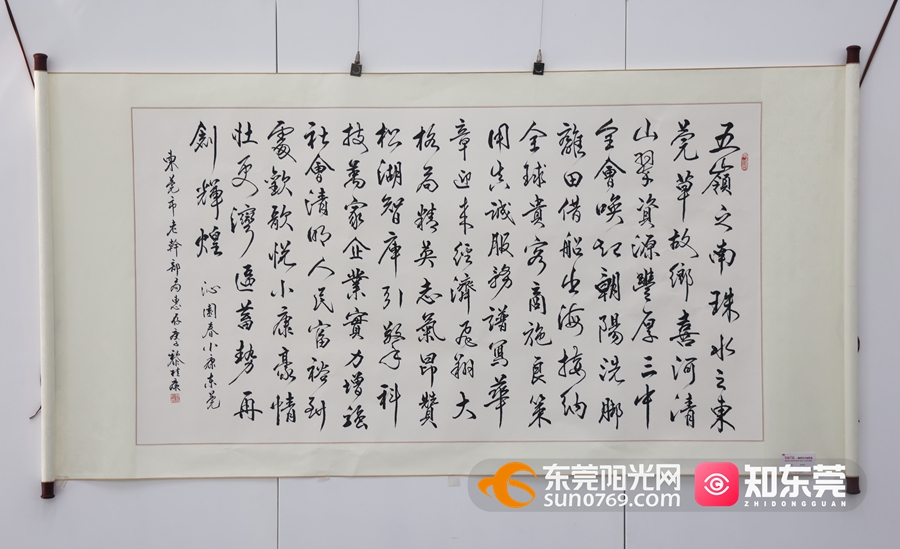 五嶺之南珠水之東
莞草故鄉喜河清
山翠資源豐厚三中
全會喚起朝陽洗腳
離田借船出海接納
全球貴客商施良策
用真誠服務譜寫華
章迎來經濟飛翔大
格局精英志氣昂贊
松湖智庫引擎科
技萬家企業實力增強
社會清明人民富裕到
處歡歌悅小康豪情
壯更灣區蓄勢再
創輝煌 沁園春小康東莞
東莞市老幹部局惠存庚子黎桂康
东莞阳光网
sun0769.com
知东莞
ZHIDONGGUAN